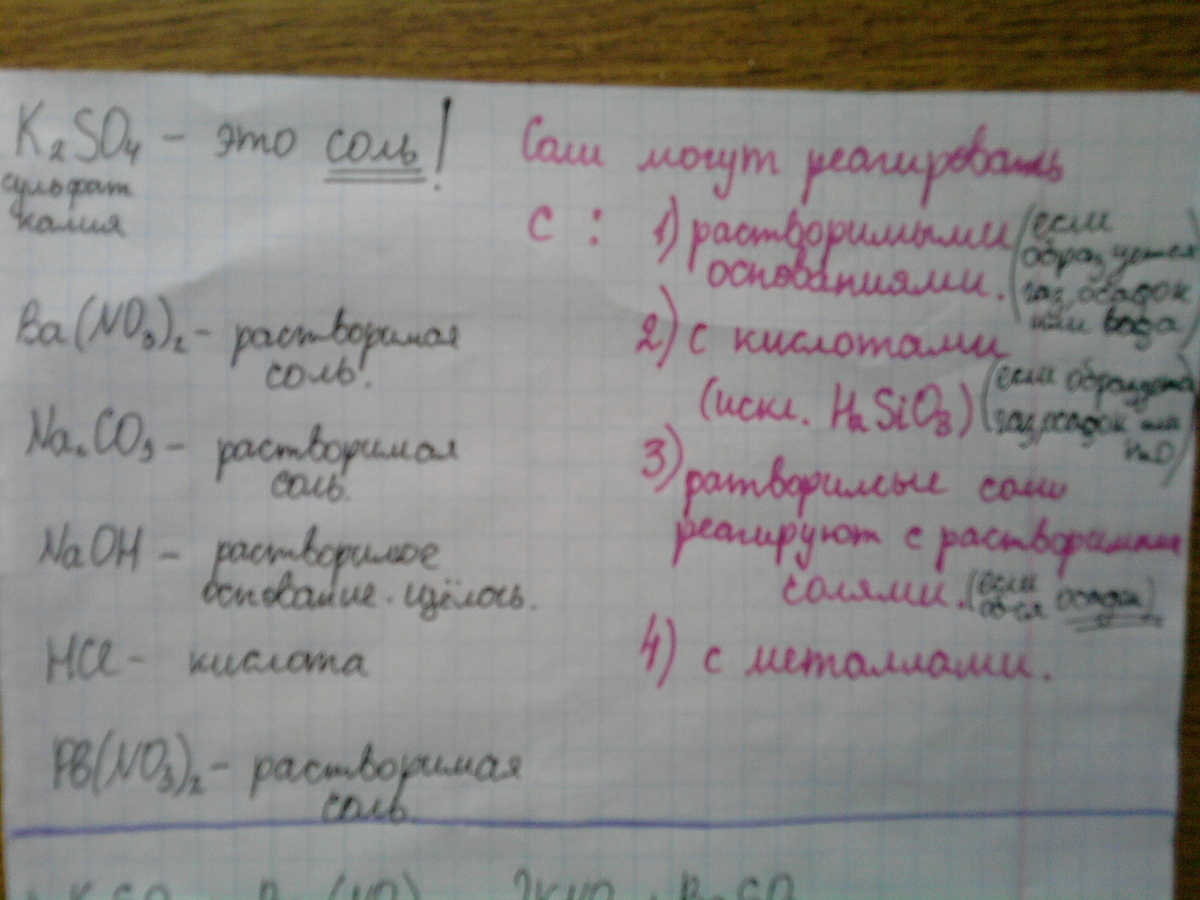 K₂SO₄ – это соль!
сульфат
калия
Ba(NO₃)₂ – растворимая
соль.
Na₂CO₃ – растворимая
соль.
NaOH – растворимое
основание. щёлочь.
HCl – кислота
PB(NO₃)₂ – растворимая
соль
Соли могут реагировать
с : 1) растворимыми
основаниями.
(если
образуется
газ, осадок
или вода)
2) с кислотами
(искл. H₂SiO₃)
(если образуется
газ, осадок или
H₂O)
3) ратворимые соли
реагируют с растворимыми
солями.
(если
об-ся осадок)
4) с металлами.